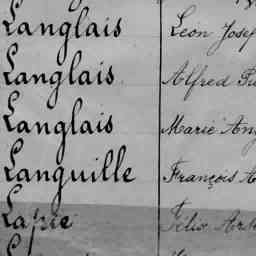 Langlais Léon Josep
Langlais Alfred
Langlais Marie Ang
Languille François A
Lapie Félix